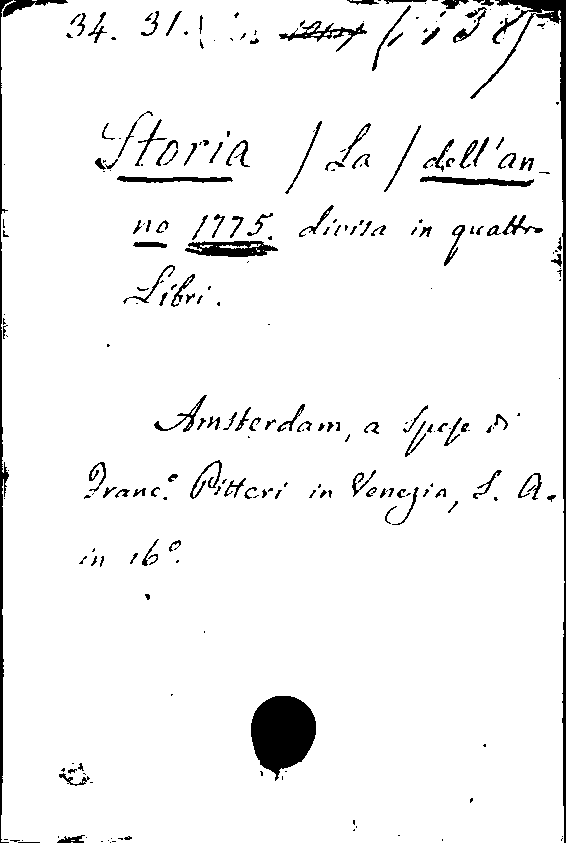 34. 31.
Storia / La / dell'an-
no 1775. divisa in quattro
Libri.
Amsterdam, a spese di
Franc.º Pitteri in Venezia, S. A.
in 16º.